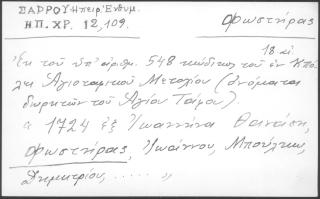 ΣΑΔΡΟΥ Ηπειρ. Ένθυμ.
ΗΠ. ΧΡ. 12, 109.
φωστήρας
18 αἰ
Ἐκ τοῦ ὑπ' ἀριθμ. 548 κώδικος τοῦ ἐν Κπό-
λει Ἁγιοταφικοῦ Μετοχίου (ὀνόματα
δωρητῶν τοῦ Ἁγίου Τάφου).
α 1724 ἐξ Ἰωαννίνα Θανάση,
φωστήρας, Ἰωάννου, Μπούλτκω,
Δημητρίου, ..... „